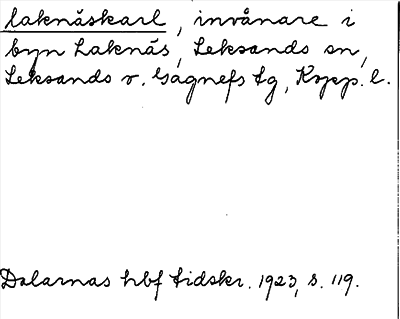 laknäskarl, invånare i
byn Laknäs, Leksands sn,
Leksands o. Gagnefs tg, Kopp. l.
Dalarnas hbf tidskr. 1923, s. 119.